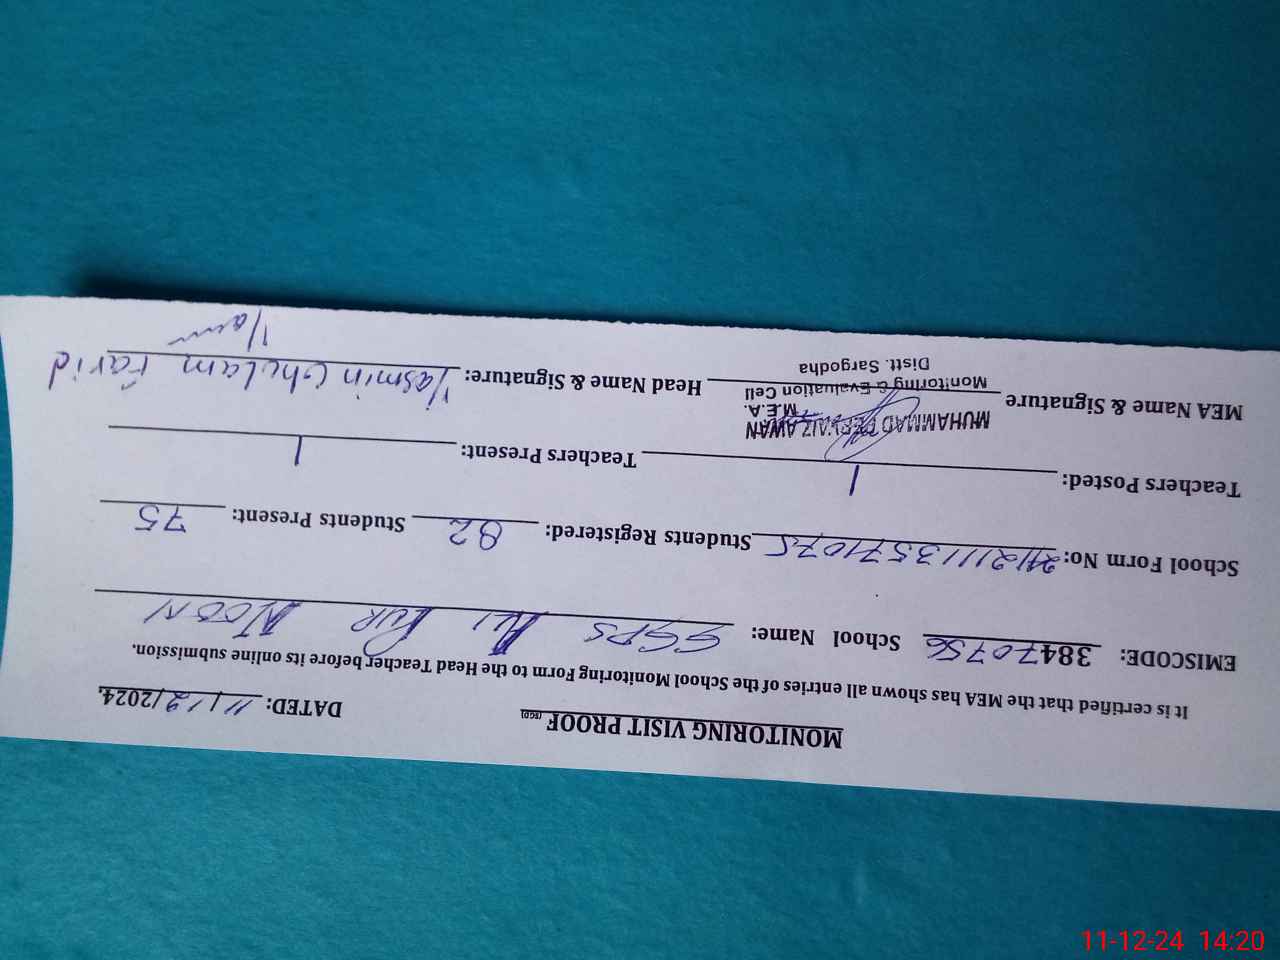 MONITORING VISIT PROOF (SGD)
DATED: 11/12/2024.
It is certified that the MEA has shown all entries of the School Monitoring Form to the Head Teacher before its online submission.
EMISCODE: 38470756 School Name: GGPS ALI PUR NOON
School Form No: Students Registered: 82 Students Present: 75
Teachers Posted: 1 Teachers Present: 1
MEA Name & Signature MUHAMMAD PERVAIZ AWAN Head Name & Signature: Yasmin Ghulam Farid
M.E.A.
Monitoring & Evaluation Cell
Distt. Sargodha
11-12-24 14:20